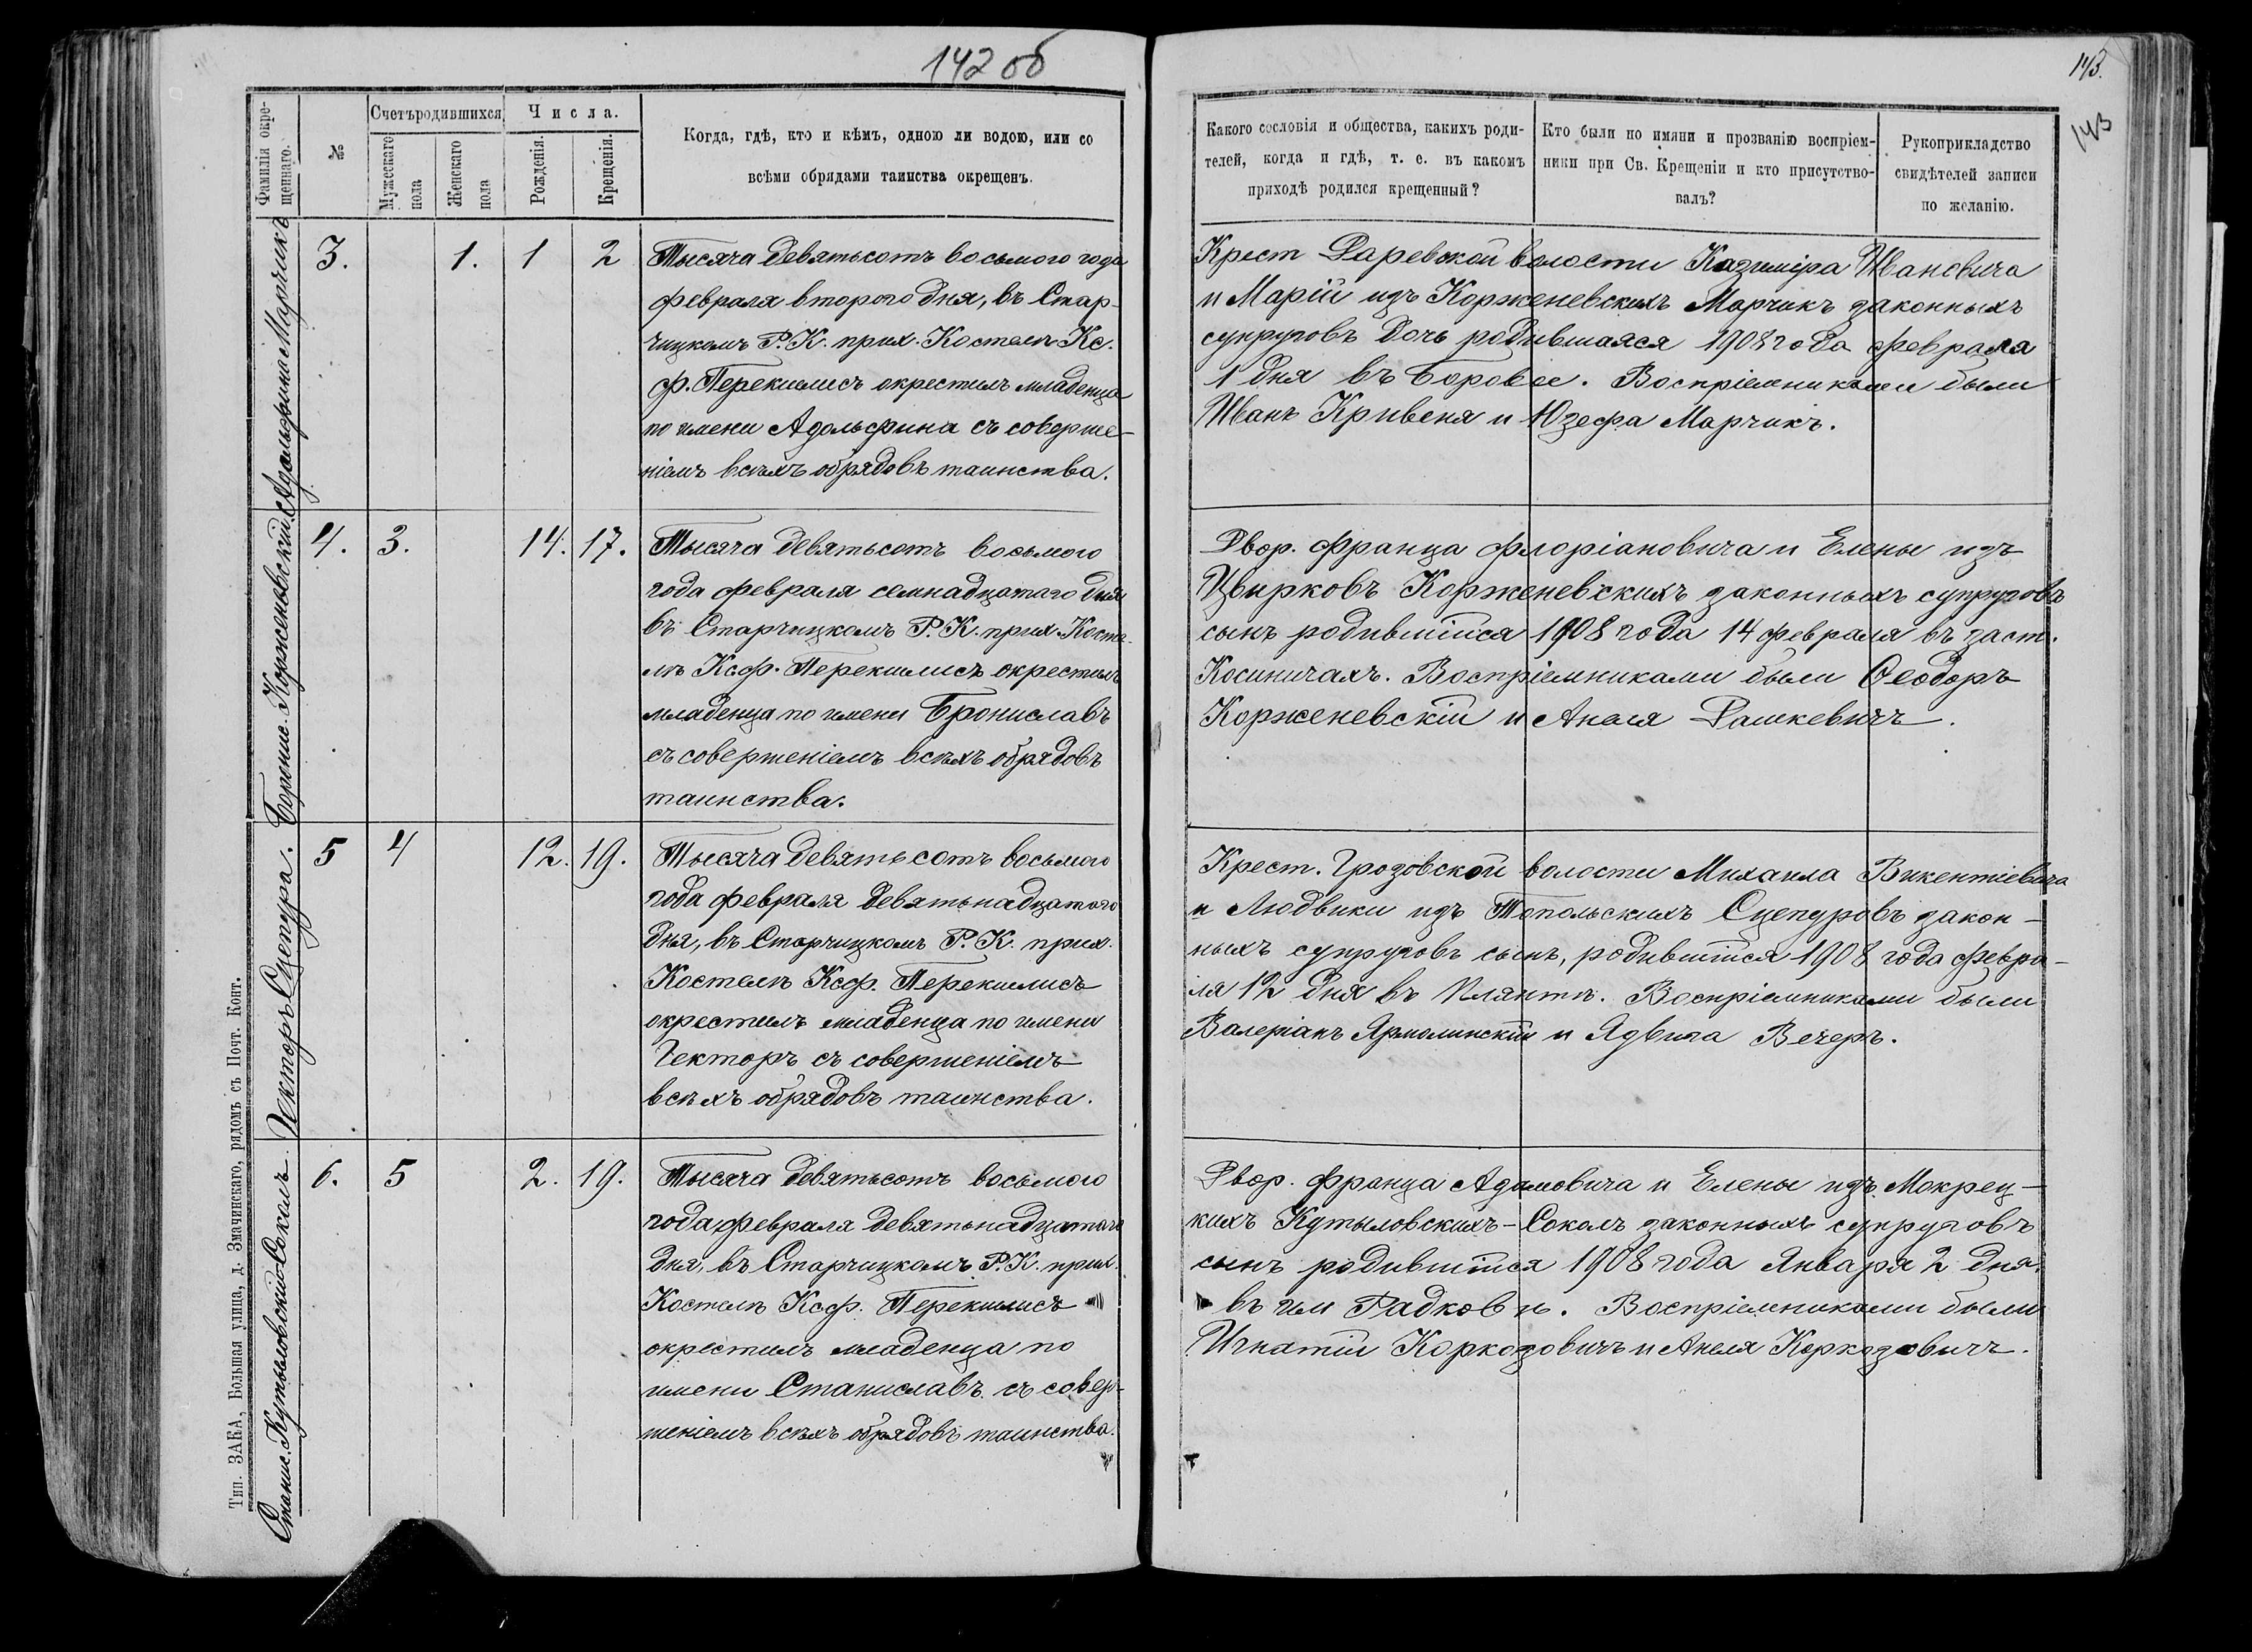 142 об
143.
143
Фамилія окре-
щеннаго.
№
Счетъ родившихся
Мужескаго
пола
Женскаго
пола
Числа.
Рожденія.
Крещенія.
Когда, гдѣ, кто и кѣмъ, одною ли водою, или со
всѣми обрядами таинства окрещенъ.
Какого сословія и общества, какихъ роди-
телей, когда и гдѣ, т. е. въ какомъ
приходѣ родился крещенный?
Кто были по имяни и прозванію воспріем-
ники при Св. Крещеніи и кто присутство-
валъ?
Рукоприкладство
свидѣтелей записи
по желанію.
Адольфина Марчикъ
3. 1. 1 2
Тысяча девятьсотъ восьмого года
февраля второго дня, въ Стар-
чицкомъ Р. К. прих. Костелѣ Кс.
Ф. Перекшлисъ окрестилъ младенца
по имени Адольфина съ соверше-
ніемъ всѣхъ обрядовъ таинства.
Крест Царевской волости Казиміра Ивановича
и Маріи изъ Корженевскихъ Марчикъ законныхъ
супруговъ дочь родившаяся 1908 года февраля
1 дня въ Боровое. Воспріемниками были
Иванъ Кривеня и Юзефа Марчикъ.
Корженевскій
4. 3. 14. 17.
Тысяча девятьсотъ восьмого
года февраля семнадцатаго дня
въ Старчицкомъ Р. К. прих. Косте-
лѣ Ксф. Перекшлисъ окрестилъ
младенца по имени Брониславъ
съ совершеніемъ всѣхъ обрядовъ
таинства.
Двор. Франца Флоріановича и Елены изъ
Цвирковъ Корженевскихъ законныхъ супруговъ
сынъ родившійся 1908 года 14 февраля въ заст.
Косиничахъ. Воспріемниками были Ѳеодоръ
Корженевскій и Анеля Рашкевичъ.
Гекторъ Сцепура.
5 4 12. 19.
Тысяча девятьсотъ восьмого
года февраля девятьнадцатаго
дня, въ Старчицкомъ Р. К. прих.
Костелѣ Ксф. Перекшлисъ
окрестилъ младенца по имени
Гекторъ съ совершеніемъ
всѣхъ обрядовъ таинства.
Крест. Грозовской волости Михаила Викентіевича
и Людвики изъ Топольскихъ Сцепуровъ закон-
ныхъ супруговъ сынъ, родившійся 1908 года февра-
ля 12 дня въ Плянтѣ. Воспріемниками были
Валеріанъ Ярмолинскій и Ядвига Вечеръ.
Станис. Кутыловскій-Соколъ.
6. 5 2. 19.
Тысяча девятьсотъ восьмого
года февраля девятьнадцатаго
дня, въ Старчицкомъ Р. К. прих.
Костелѣ Ксф. Перекшлисъ
окрестилъ младенца по
имени Станиславъ съ совер-
шеніемъ всѣхъ обрядовъ таинства.
Двор. Франца Адамовича и Елены изъ Мокрец-
кихъ Кутыловскихъ-Соколъ законныхъ супруговъ
сынъ родившійся 1908 года Января 2 дня
въ им Радковѣ. Воспріемниками были
Игнатій Коркозовичъ и Анеля Коркозовичъ.
Тип. ЗАКА, Большая улица, д. Змачинскаго, рядомъ съ Почт. Конт.